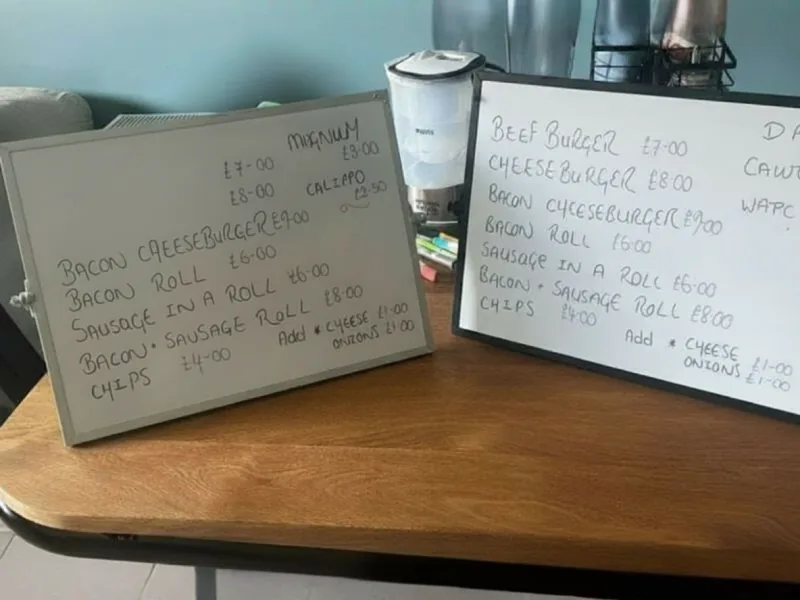 MAGNUM
£7-00 £3-00
£8-00 CALIPPO
£2-50
BACON CHEESEBURGER £9-00
BACON ROLL £6-00
SAUSAGE IN A ROLL £6-00
BACON + SAUSAGE ROLL £8-00
CHIPS £4-00
Add * CHEESE £1-00
ONIONS £1-00
BEEF BURGER £7-00
CHEESEBURGER £8-00
BACON CHEESEBURGER £9-00
BACON ROLL £6-00
SAUSAGE IN A ROLL £6-00
BACON + SAUSAGE ROLL £8-00
CHIPS £4-00
Add * CHEESE £1-00
ONIONS £1-00